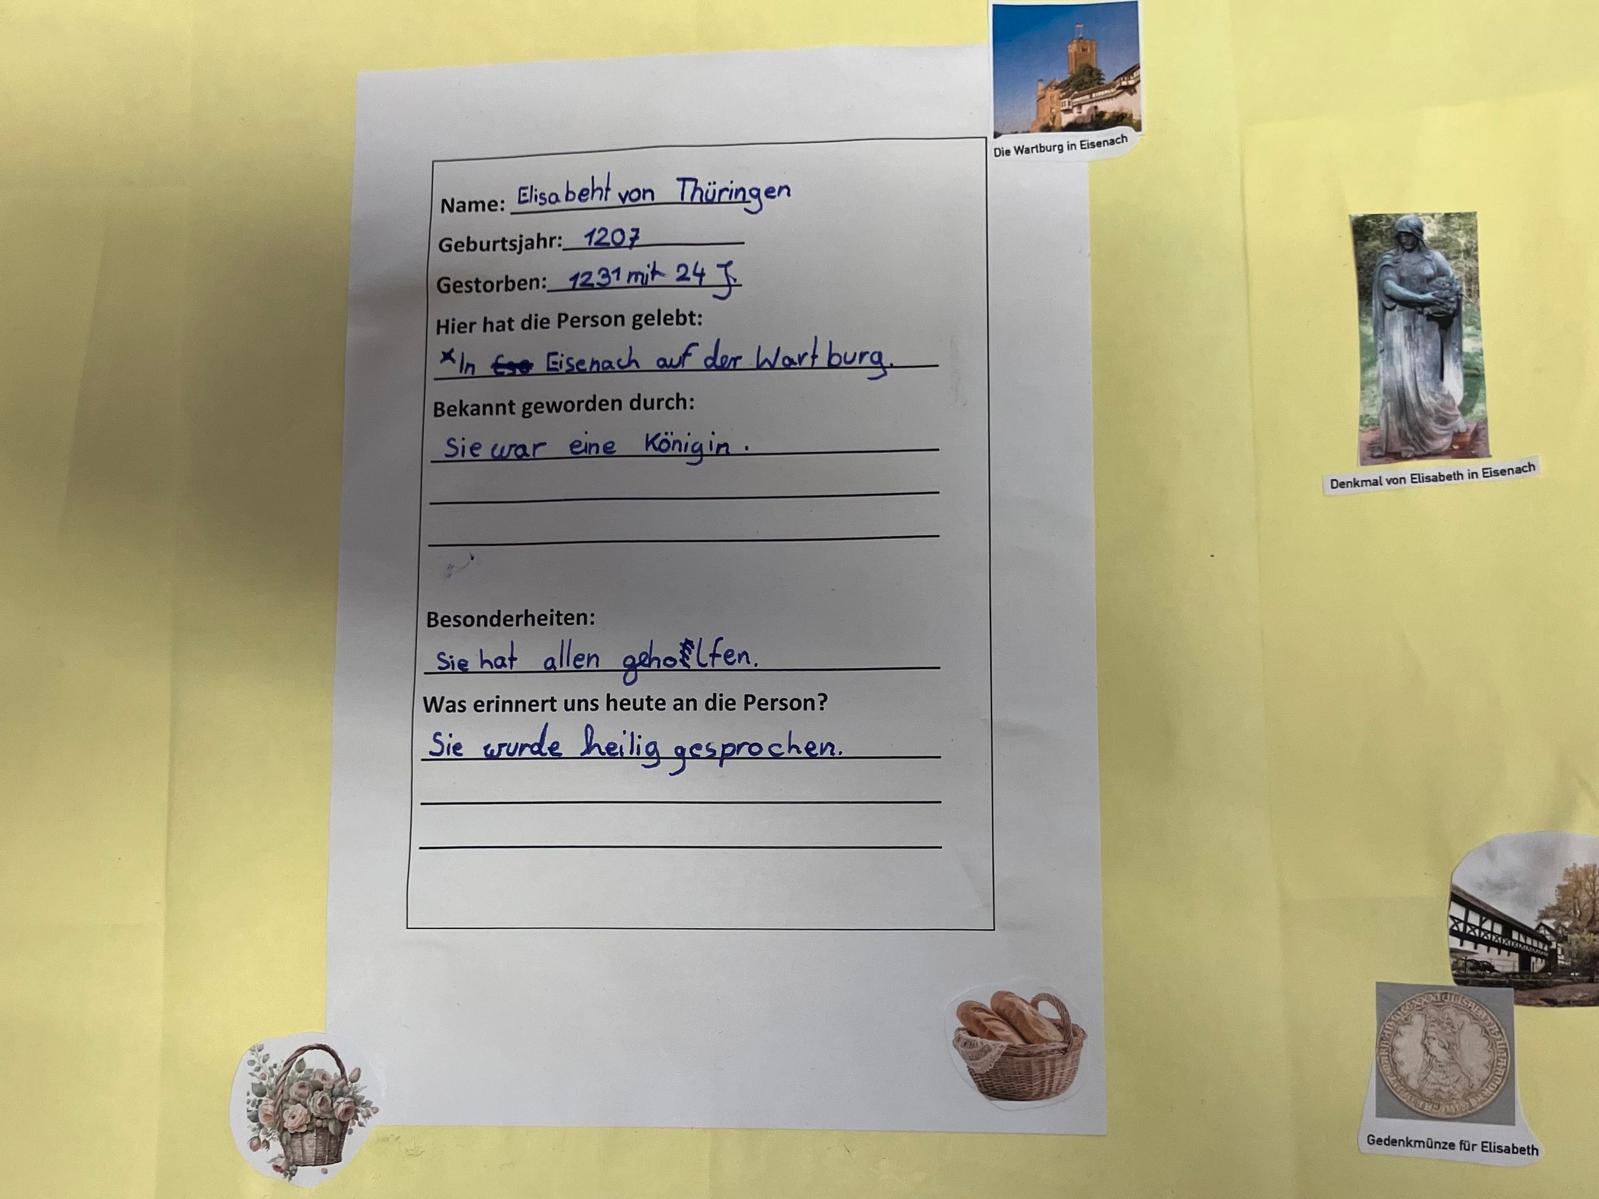 Die Wartburg in Eisenach
Name: Elisabeht von Thüringen
Geburtsjahr: 1207
Gestorben: 1231 mit 24 J.
Hier hat die Person gelebt:
*In Eisenach auf der Wartburg.
Bekannt geworden durch:
Sie war eine Königin.
Besonderheiten:
Sie hat allen geholfen.
Was erinnert uns heute an die Person?
Sie wurde heilig gesprochen.
Denkmal von Elisabeth in Eisenach
Gedenkmünze für Elisabeth